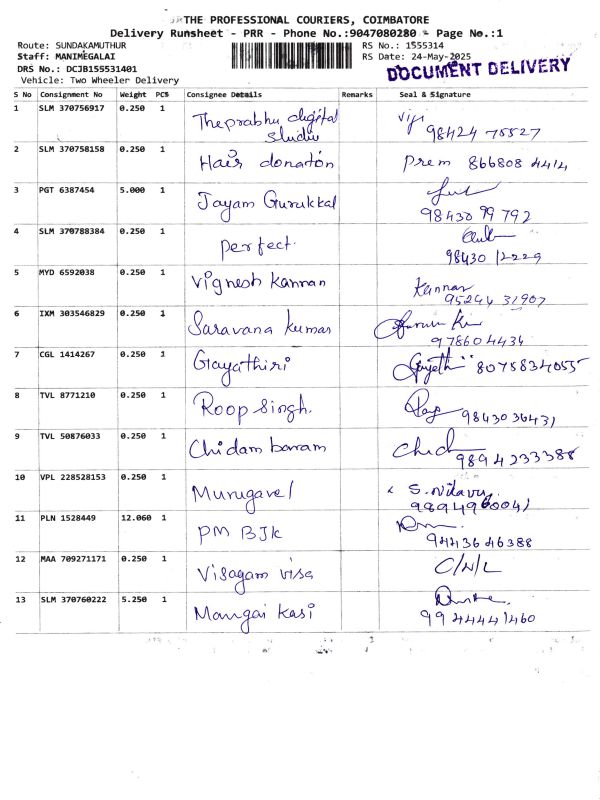 THE PROFESSIONAL COURIERS, COIMBATORE
Delivery Runsheet - PRR - Phone No.:9047080280 - Page No.:1
Route: SUNDAKAMUTHUR
RS No.: 1555314
Staff: MANIMEGALAI
RS Date: 24-May-2025
DRS No.: DCJB155531401
DOCUMENT DELIVERY
Vehicle: Two Wheeler Delivery
S No Consignment No Weight PCS Consignee Details Remarks Seal & Signature
1 SLM 370756917 0.250 1 Theprabhu digital studio Viji
98424 75527
2 SLM 370758158 0.250 1 Hair donation Prem 866808 4414
3 PGT 6387454 5.000 1 Jayam Gurukkal
98430 99 792
4 SLM 370788384 0.250 1 perfect.
98430 12229
5 MYD 6592038 0.250 1 Vignesh kannan Kannan
95244 31907
6 IXM 303546829 0.250 1 Saravana kumar
978604434
7 CGL 1414267 0.250 1 Gayathiri Gayethi 8075834055
8 TVL 8771210 0.250 1 Roop Singh.
9843036431
9 TVL 50876033 0.250 1 Chidambaram Chid
9894233388
10 VPL 228528153 0.250 1 Murugavel S. Nilavu
9894960041
11 PLN 1528449 12.060 1 PM BJK
9443646388
12 MAA 709271171 0.250 1 Visagam visa C/N/L
13 SLM 370760222 5.250 1 Mangai Kasi
9944441460